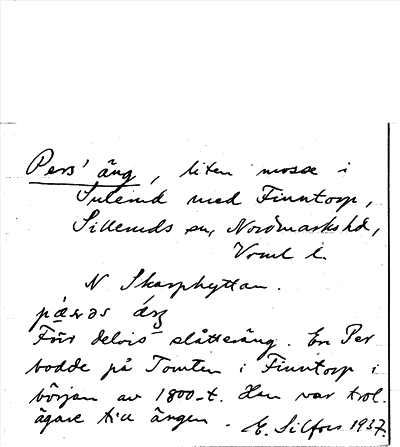 Pers' äng, liten mosse i
Sulerud med Finntorp,
Silleruds sn, Nordmarks hd,
Vrml l.
N Skarphyttan.
Förr delvis slåtteräng. En Per
bodde på Tomten i Finntorp i
början av 1800-t. Han var trol.
ägare till ängen. E. Silfors 1937.